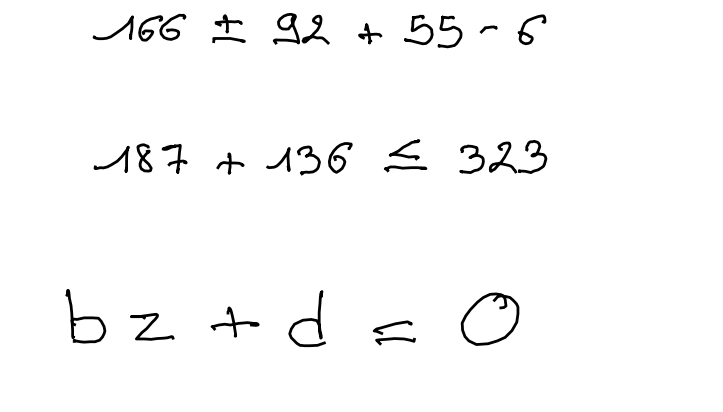 166 ± 92 + 55 - 6
187 + 136 ≤ 323
bz + d ≤ 0